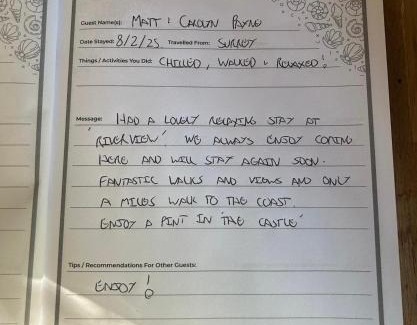 Guest Name(s): MATT & CAROLYN PAYNE
Date Stayed: 8/2/25 Travelled From: SURREY
Things / Activities You Did: CHILLED, WALKED & RELAXED!
Message: HAD A LOVELY RELAXING STAY AT
'RIVERVIEW'. WE ALWAYS ENJOY COMING
HERE AND WILL STAY AGAIN SOON.
FANTASTIC WALKS AND VIEWS AND ONLY
A MILES WALK TO THE COAST.
ENJOY A PINT IN 'THE CASTLE'
Tips / Recommendations For Other Guests:
ENJOY!